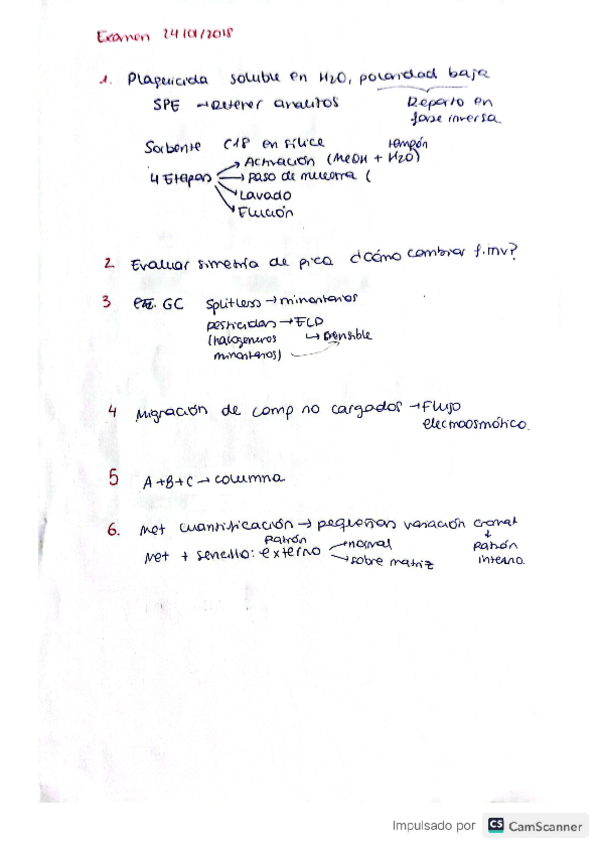 Examen 24/01/2018
1. Plaguicida soluble en H2O, polaridad baja
SPE → retener analitos Reparto en
fase inversa.
Sorbente C18 en sílice tampón
4 Etapas → Activación (MeOH + H2O)
→ paso de muestra (
→ Lavado
→ Elución
2 Evaluar simetría de pico ¿Cómo cambiar f.mv?
3 GC Splitless → minoritarios
pesticidas → ECD
(halógenuros ↳ sensible
minoritarios)
4 Migración de comp no cargados → Flujo
electroosmótico.
5 A+B+C → columna
6. Met cuantificación → pequeñas variación cromat
Patrón ↓
Met + sencillo: externo → normal Patrón
→ sobre matriz interno.
Impulsado por CS CamScanner